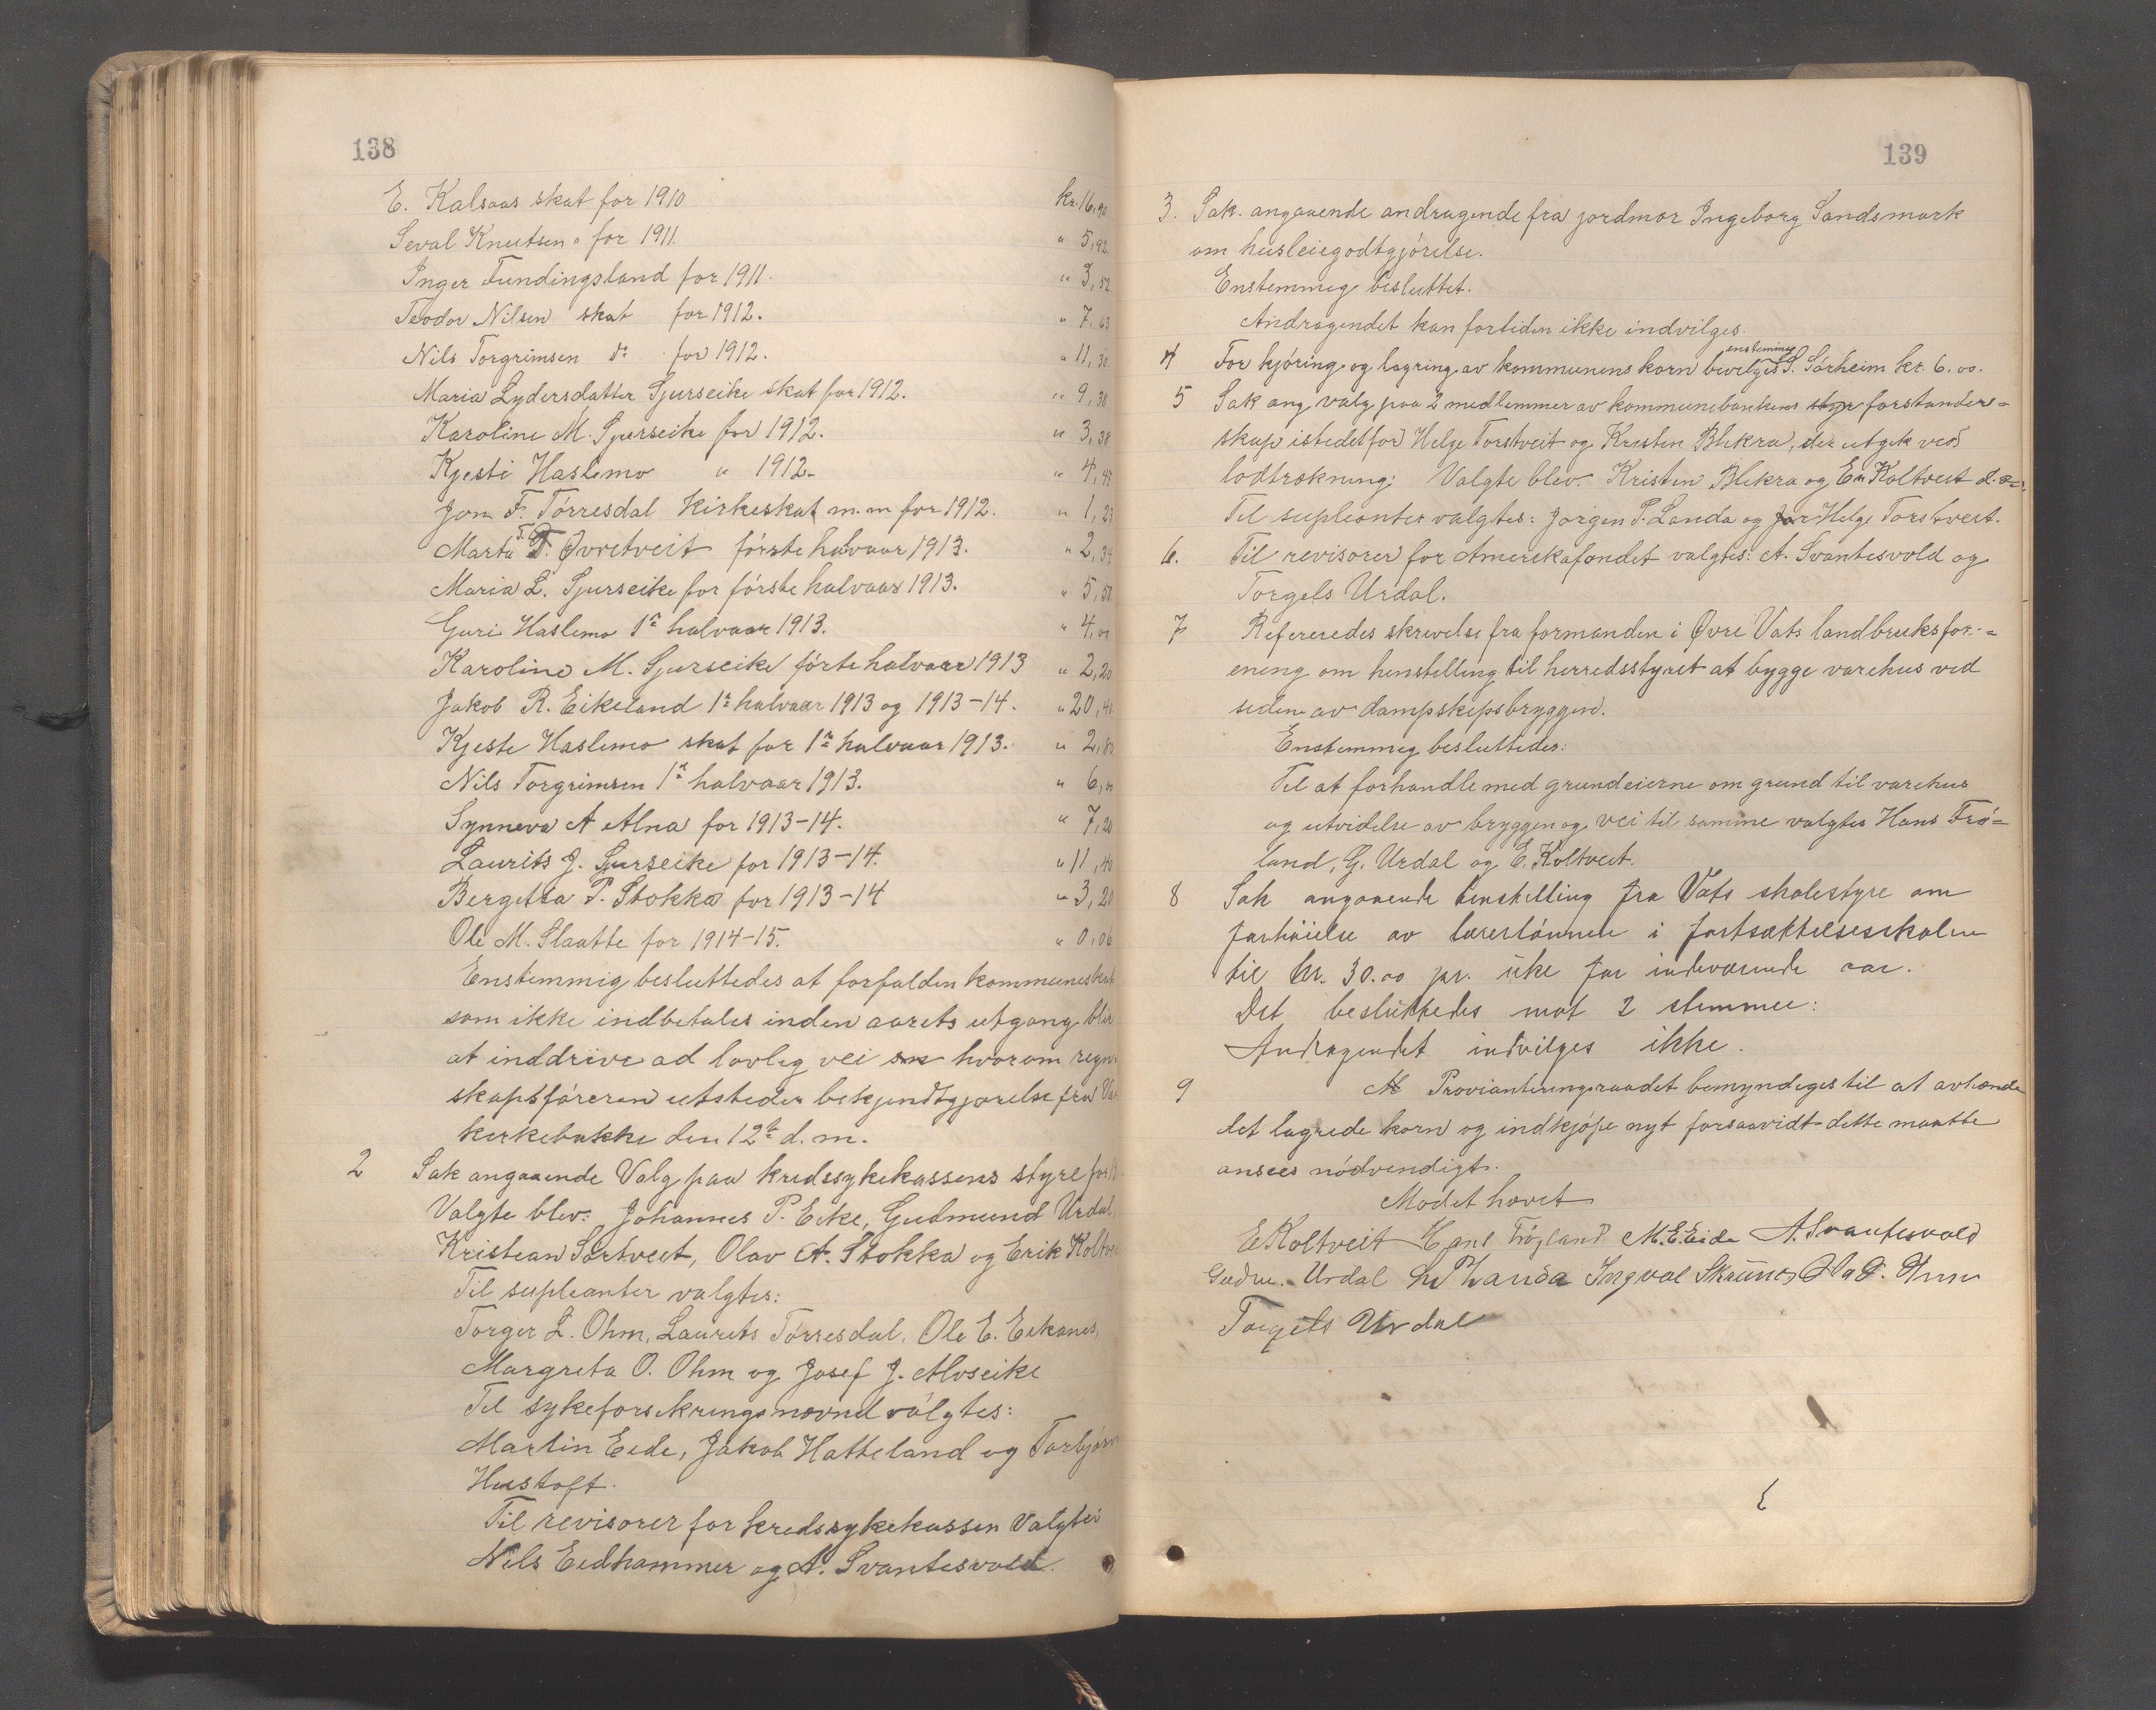 138
E. Kalsaas skat for 1910 kr. 16,90
Seval Knutsen " for 1911. " 5,92
Inger Fundingsland for 1911. " 3,52
Teodor Nilsen skat for 1912. " 7,63
Nils Torgrimsen do for 1912. " 11,30
Maria Lydersdatter Sjurseike skat for 1912. " 9,30
Karoline M. Sjurseike for 1912. " 3,38
Kjesti Haslemo " 1912. " 4,48
Jon F. Tórresdal Kirkeskat m.m for 1912. " 1,23
Marta T. Øvretveit fórste halvaar 1913. " 2,34
Maria L. Sjurseike for fórste halvaar 1913. " 5,50
Guri Haslemo 1ste halvaar 1913. " 4,00
Karoline M. Sjurseike fórte halvaar 1913 " 2,20
Jakob R. Eikeland 1ste halvaar 1913 og 1913-14. " 20,40
Kjeste Haslemo skat for 1ste halvaar 1913. " 2,80
Nils Torgrimsen 1ste halvaar 1913. " 6,00
Synneva A Alna for 1913-14. " 7,20
Laurits J. Sjurseike for 1913-14. " 11,40
Bergitta P. Stokka for 1913-14 " 3,20
Ole M. Slaatte for 1914-15. " 0,06
Enstemmig besluttedes at forfalden kommuneskat
som ikke indbetales inden aarets utgang blir
at inddrive ad lovleg vei hvorom regn-
skapsfóreren utsteder bekjendtgjørelse fra
kerkebakke den 12te d.m.
2 Sak angaaende Valg paa kredssykekassens styre for
Valgte blev: Johannes P. Eike, Gudmund Urdal,
Kristean Sørtveet, Olav A. Stokka og Erik Koltveit
Til supleanter valgtes:
Torger L. Ohm, Laurits Tórresdal, Ole E. Eikanes,
Margreta O. Ohm og Josef J. Alvseike
Til sykeforsikringsnævnd válgtes:
Martin Eide, Jakob Hatteland og Torbjórn
Hustoft.
Til revisorer for kredssykekassen Valgtes
Nils Eidhammer og A. Svantesvold.
139
3. Sak. angaaende andragende fra jordmor Ingeborg Sandsmark
om husleiegodtgjórelse.
Enstemmig besluttet.
Andragendet kan fortiden ikke indvilges.
enstemmig
4 For kjóring og lagring av kommunens korn bevilges S. Sórheim kr. 6.00.
5 Sak ang valg paa 2 medlemmer av kommunebankens styr forstander-
skap istedetfor Helge Torstveit og Kristen Blikra, der utgik ved
lodtrækning: Valgte blev. Kristen Blikra og E. Koltveit
Til supleanter valgtes: Jørgen S. Landa og for Helge Torstveit.
6. Til revisorer for Amerikafondet valgtes: A. Svantesvold og
Torgels Urdal.
7 Refereredes skrivelse fra formanden i Øvre Vats landbruksfor-
ening om henstelling til herredsstyret at bygge varehus ved
siden av dampskipsbryggen.
Enstemmig besluttedes:
Til at forhandle med grundeierne om grund til varehus
og utvidelse av bryggen og vei til samme valgtes Hans Frø-
land, G. Urdal og E. Koltveit.
8 Sak angaaende henstelling fra Vats skolestyre om
forhöielse av lærerlønnen i fortsættelsesskolen
til kr. 30.00 pr. uke for indeværende aar.
Det besluttedes mot 2 stemmer:
Andragendet indvilges ikke.
9 Provianteringsraadet bemyndiges til at avhænde
det lagrede korn og indkjópe nyt forsaavidt dette maatte
ansees nódvendigt.
Modet hævet
E Koltveit Hans Frögland M. E. Eide A. Svantesvold
Gudm. Urdal Landa Ingval Skaünes
Torgels Urdal